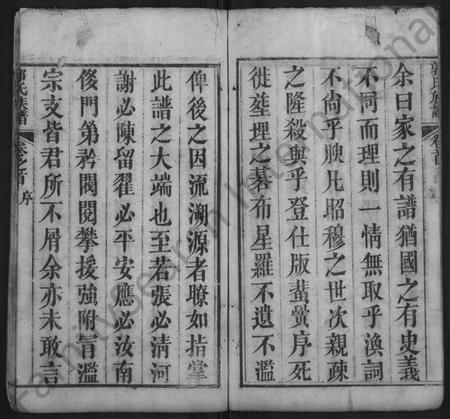 余曰家之有譜猶國之有史義
不同而理則一情無取乎渙詞
不尚乎腴凡昭穆之世次親疎
之隆殺與乎登仕版蜚黌序死
徙塟埋之碁布星羅不遺不濫
郭氏族譜
卷首
俾後之因流溯源者瞭如指掌
此譜之大端也至若張必清河
謝必陳留翟必平安應必汝南
倭門第矜閥閱攀援強附冒濫
宗支皆君所不屑余亦未敢言
郭氏族譜
卷之首
序
FamilySearch International